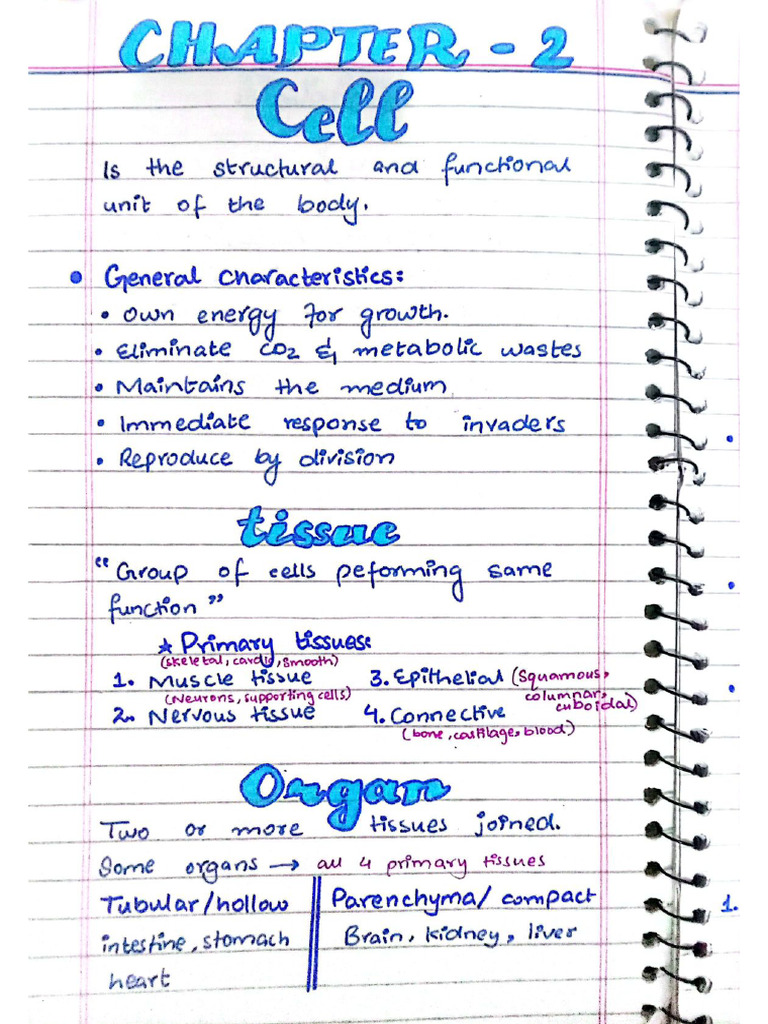 CHAPTER - 2
Cell
Is the structural and functional
unit of the body.
• General characteristics:
• Own energy for growth.
• Eliminate CO2 & metabolic wastes
• Maintains the medium
• Immediate response to invaders
• Reproduce by division
tissue
"Group of cells peforming same
function"
★ Primary tissues:
(skeletal, cardic, smooth)
1. Muscle tissue
(Neurons, supporting cells)
2. Nervous tissue
3. Epithelial (squamous,
columnar,
cuboidal)
4. Connective
(bone, castilage, blood)
Organ
Two or more tissues joined.
Some organs → all 4 primary tissues
Tubular/hollow
intestine, stomach
heart
Parenchyma/ compact
Brain, kidney, liver
1.